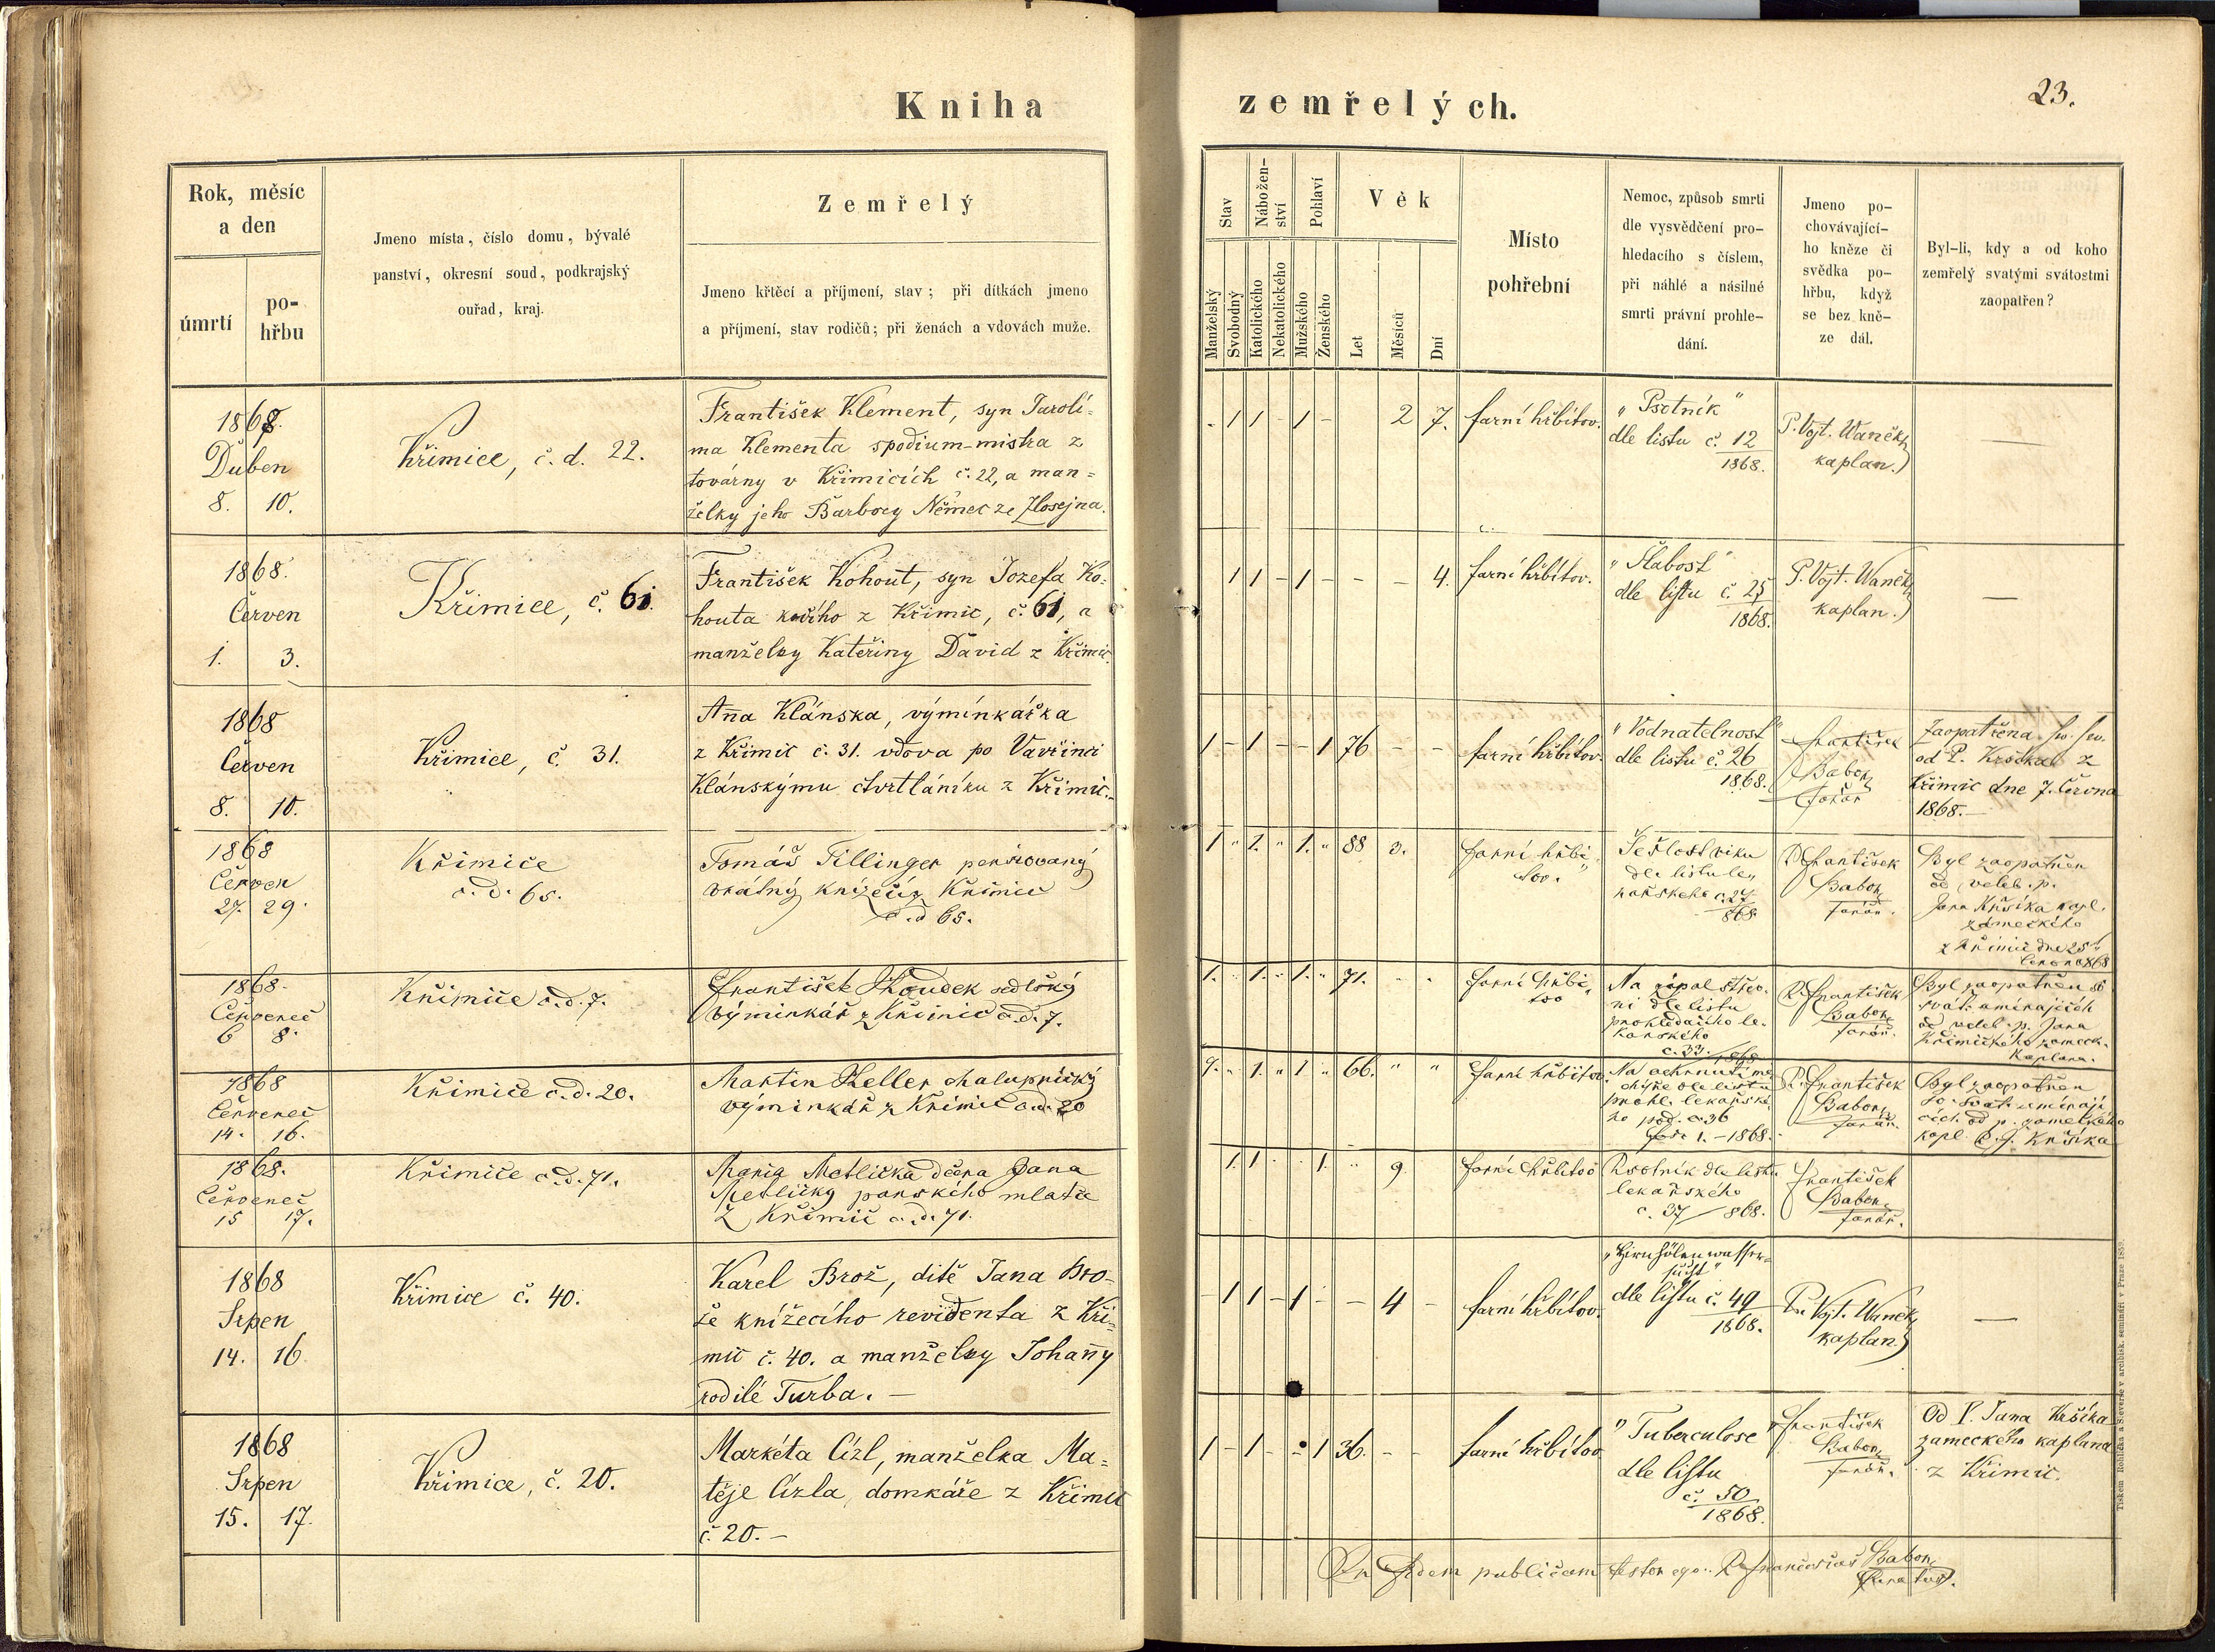 Kniha
zemřelých.
23.
Rok, měsíc
a den
úmrtí
po-
hřbu
Jmeno místa, číslo domu, bývalé
panství, okresní soud, podkrajský
ouřad, kraj.
Zemřelý
Jmeno křtěcí a příjmení, stav; při dítkách jmeno
a příjmení, stav rodičů; při ženách a vdovách muže.
Stav
Nábožen-
ství
Pohlaví
Věk
Manželský
Svobodný
Katolického
Nekatolického
Mužského
Ženského
Let
Měsíců
Dní
Místo
pohřební
Nemoc, způsob smrti
dle vysvědčení pro-
hledacího s číslem,
při náhlé a násilné
smrti právní prohle-
dání.
Jmeno po-
chovávající-
ho kněze či
svědka po-
hřbu, když
se bez kně-
ze dál.
Byl-li, kdy a od koho
zemřelý svatými svátostmi
zaopatřen?
1868.
Duben
8. 10.
Křimice, č. d. 22.
František Klement, syn Jarolí-
ma Klementa spodium-mistra z
továrny v Křimicích č. 22, a man-
želky jeho Barbory Němec ze Zlosejna.
- 1 1 - 1 - 2 7.
farní hřbitov.
"Psotník"
dle listu č. 12
1868.
P. Vojt. Waněk,
kaplan.)
—
1868.
Červen
1. 3.
Křimice, č. 61.
František Kohout, syn Jozefa Ko-
houta kočího z Křimic, č. 61, a
manželky Kateřiny David z Křimic.
1 1 - 1 - - - 4.
farní hřbitov.
"Slabost"
dle listu č. 25
1868.
P. Vojt. Waněk,
kaplan.)
—
1868
Červen
8. 10.
Křimice, č. 31.
Anna Klánska, výminkářka
z Křimic č. 31. vdova po Vavřinci
Klánskýmu čtvrtláníku z Křimic.-
1 - 1 - - 1 76 - -
farní hřbitov.
"Vodnatelnost"
dle listu č. 26
1868.
František
Babor,
farář
Zaopatřena sv. sv.
od P. Kršíka z
Křimic dne 7. Června
1868.-
1868
Červen
27. 29.
Křimice
č. d. 65.
Tomáš Tillinger pensiovaný
vrátný knížecí z Křimic
č. d 65.
1 " 1. " 1. " 88 3.
farní hřbi-
tov.
Sešlost věku
dle listu le-
kařského č. 27
868
P. František
Babor,
farář.
Byl zaopatřen
od veleb. p.
Jana Kršíka kapl.
zámeckého
z Křimic dne 25
června 868
1868.
Červenec
6 8.
Křimice č. d. 7.
František Koudek sedlský
výminkář z Křimic č. d. 7.
1. " 1. " 1. " 71. " "
farní hřbi-
tov
Na zápal střev-
ní dle listu
prohledacího le-
kařského
č. 33. 1868
P. František
Babor,
farář.
Byl zaopatřen
svát. umírajících
od veleb. p. Jana
Křimického zámeck.
kaplana.
1868
Červenec
14. 16.
Křimice č. d. 20.
Martin Keller chalupnický
výminkář z Křimic č. d. 20
1. " 1. " 1 " 66. " "
farní hřbitov.
Na ochrnutí mo-
chýře dle listu
prohl. lekařské-
ho pod. č. 36
1.-1868.
P. František
Babor,
farář.
Byl zaopatřen
sv. svát. umírají-
cích od p. zámeckého
kapl. P. J. Kršíka
1868.
Červenec
15 17.
Křimice č. d. 71.
Maria Metlička dcera Jana
Metličky panského mlatce
z Křimic č. d. 71.
1. 1 1. 9.
farní hřbitov
Psotník dle listu
lekařského
č. 37/868.
František
Babor,
farář.
1868
Srpen
14. 16.
Křimice č. 40.
Karel Brož, dítě Jana Bro-
že knížecího revidenta z Kři-
mic č. 40. a manželky Johanny
rodilé Turba.-
- 1 1 - 1 - - 4 -
farní hřbitov.
"Hirnhölenwasser-
sucht"
dle listu č. 49
1868.
P. Vojt. Waněk,
kaplan)
—
1868
Srpen
15. 17.
Křimice, č. 20.
Markéta Cízl, manželka Ma-
těje Cízla, domkáře z Křimic
č. 20.-
1 - 1 - - 1 36. - -
farní hřbitov
"Tuberculose"
dle listu
č. 50
1868.
František
Babor,
farář.
Od P. Jana Kršíka
zameckého kaplana
z Křimic.
In fidem publicam testor ego: P. Franciscus Babor,
Curatus.
Tiskem Rohlíčka a Sieverse v arcibisk. semináři v Praze 1859.